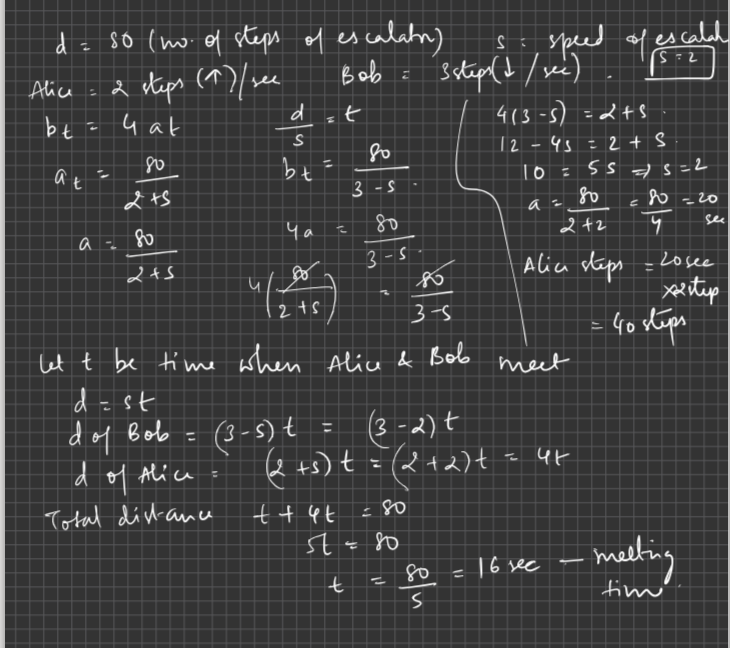 d = 80 (no. of steps of escalator) s : speed of escalat
s = 2
Alice = 2 steps (↑)/sec Bob = 3 steps(↓ / sec) .
b_t = 4 at
a_t = 80 / 2+s
a = 80 / 2+s
d / s = t
b_t = 80 / 3 - s .
4a = 80 / 3 - s .
4 (80 / 2+s) = 80 / 3-s
4(3 - s) = 2 + s .
12 - 4s = 2 + s .
10 = 5s ⇒ s = 2
a = 80 / 2+2 = 80 / 4 = 20 sec
Alice steps = 20 sec
x 2 step
= 40 steps
Let t be time when Alice & Bob meet
d = st
d of Bob = (3 - s) t = (3 - 2) t
d of Alice = (2 + s) t = (2 + 2) t = 4t
Total distance t + 4t = 80
5t = 80
t = 80 / 5 = 16 sec — meeting
time.